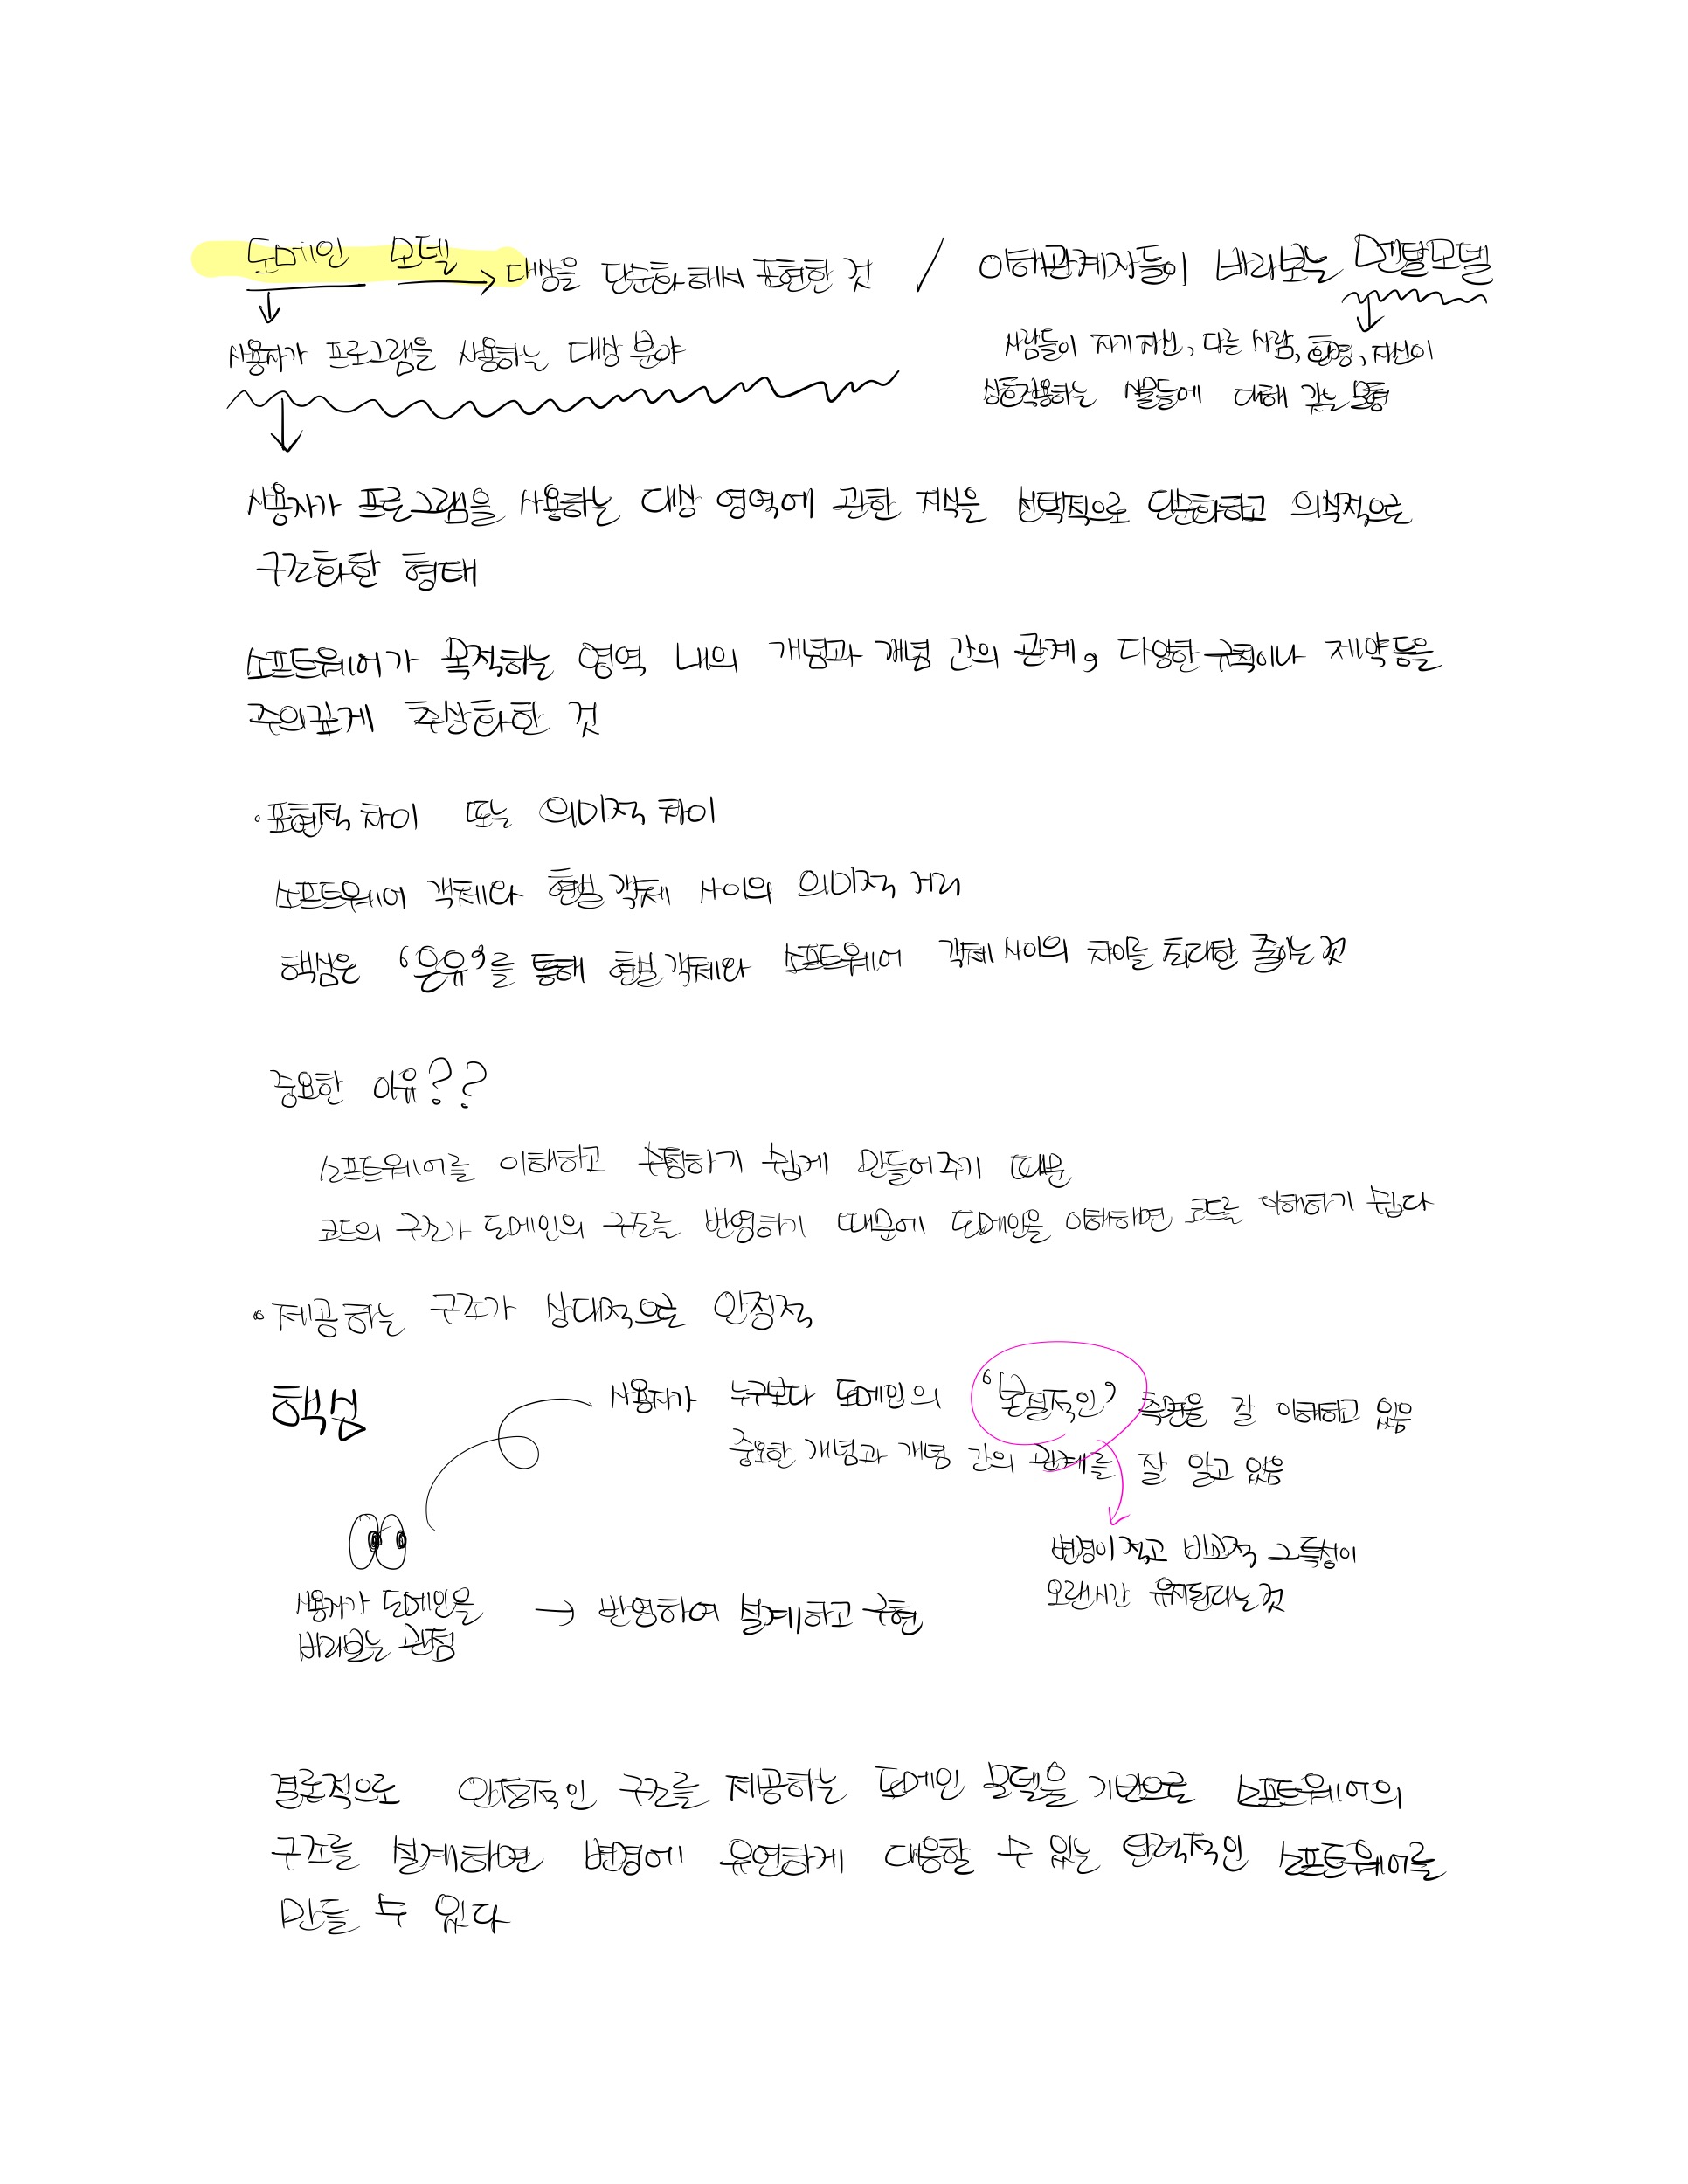 도메인 모델 → 대상을 단순화해서 표현한 것 / 이해관계자들이 바라보는 멘탈모델
사용자가 프로그램을 사용하는 대상 분야
사람들이 자기자신, 다른 사람, 환경, 자신이
상호작용하는 사물들에 대해 갖는 모형
사용자가 프로그램을 사용하는 대상 영역에 관한 지식을 선택적으로 단순화하고 의식적으로
구조화한 형태
소프트웨어가 목적하는 영역 내의 개념과 개념 간의 관계, 다양한 규칙이나 제약등을
주의깊게 추상화한 것
• 표현적 차이 또는 의미적 차이
소프트웨어 객체와 현실 객체 사이의 의미적 거리
핵심은 '은유'를 통해 현실 객체와 소프트웨어 객체 사이의 차이를 최대한 줄이는 것
중요한 이유??
소프트웨어를 이해하고 수정하기 쉽게 만들어주기 때문
코드의 구조가 도메인의 구조를 반영하기 때문에 도메인을 이해하면 코드를 이해하기 쉽다
• 제공하는 구조가 상대적으로 안정적
핵심
사용자가 누구보다 도메인의 '본질적인' 측면을 잘 이해하고 있음
중요한 개념과 개념 간의 관계를 잘 알고 있음
변경이 적고 비교적 그 특성이
오랜시간 유지된다는 것
사용자가 도메인을
바라보는 관점
→ 반영하여 설계하고 구현
결론적으로 안정적인 구조를 제공하는 도메인 모델을 기반으로 소프트웨어의
구조를 설계하면 변경에 유연하게 대응할 수 있는 탄력적인 소프트웨어를
만들 수 있다